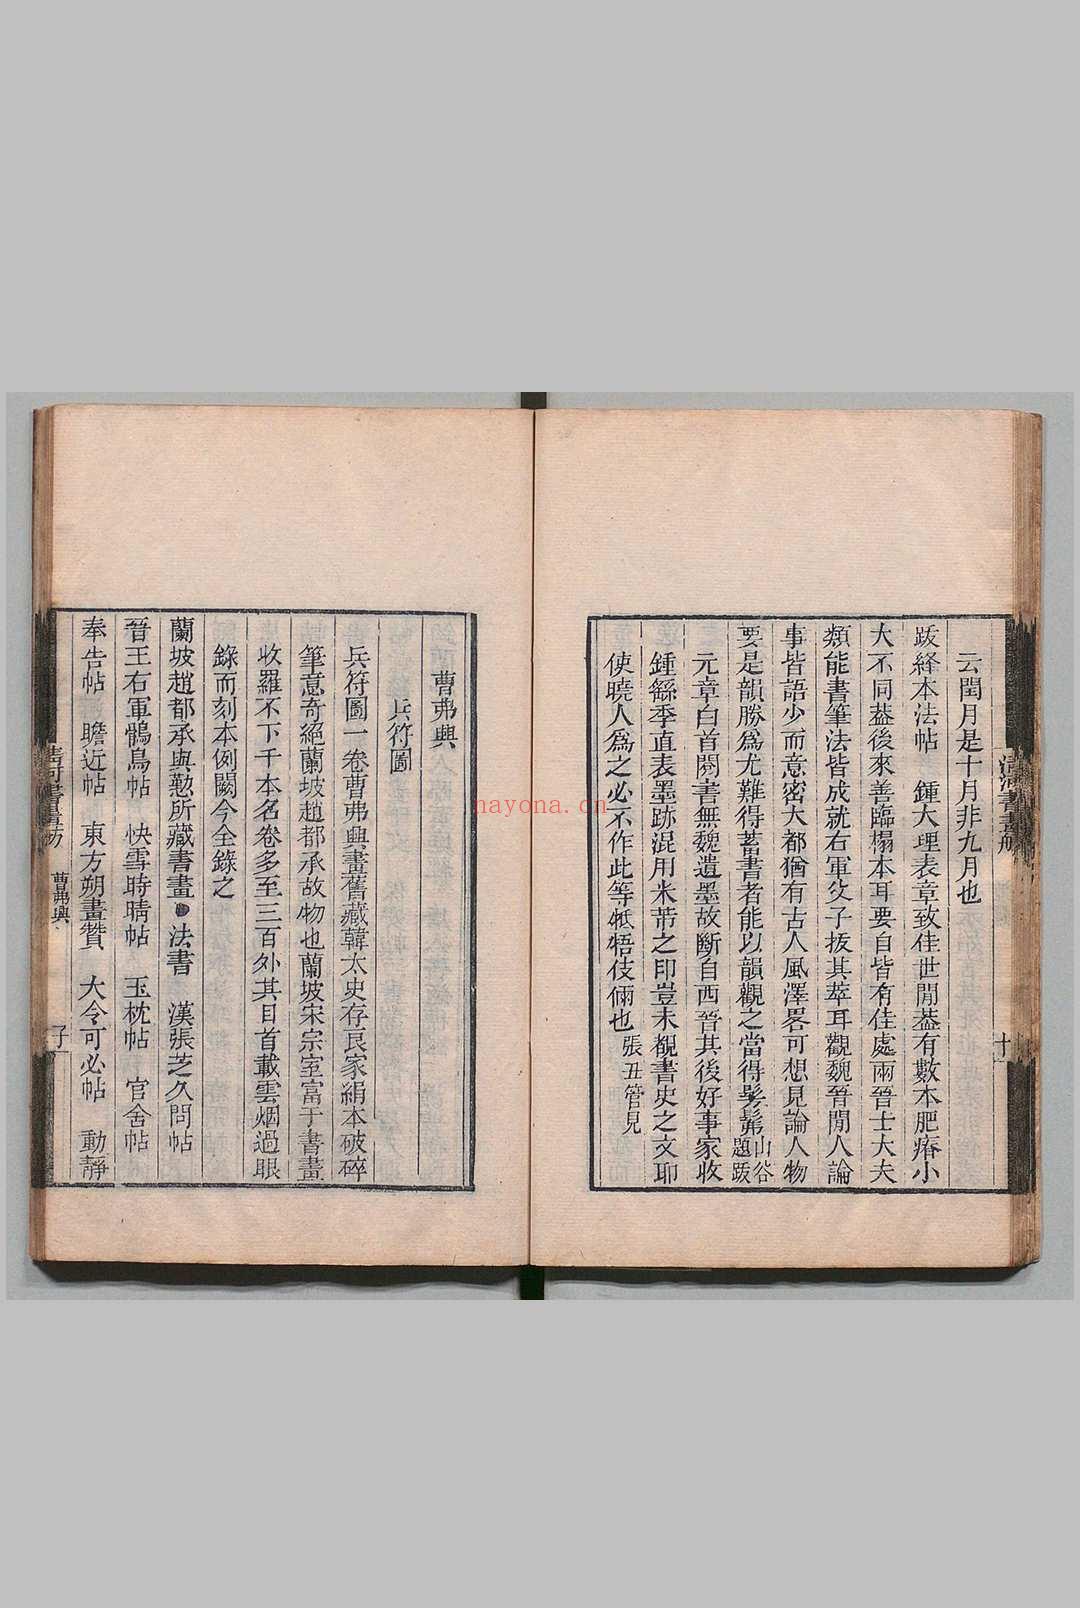 云閏月是十月非九月也
跋絳本法帖 鍾大理表章致佳世閒葢有數本肥瘠小
大不同葢後來善臨榻本耳要自皆有佳處兩晉士大夫
類能書筆法皆成就右軍父子拔其萃耳觀魏晉閒人論
事皆語少而意密大都猶有古人風澤畧可想見論人物
要是韻勝爲尤難得蓄書者能以韻觀之當得髣髴山谷題跋
元章白首閱書無魏遺墨故斷自西晉其後好事家收
鍾繇季直表墨跡混用米芾之印豈未覩書史之文耶
使曉人爲之必不作此等牴牾伎倆也張丑管見
清河書畫舫
十
曹弗興
兵符圖
兵符圖一卷曹弗興畫舊藏韓太史存良家絹本破碎
筆意奇絕蘭坡趙都承故物也蘭坡宋宗室富于書畫
收羅不下千本名卷多至三百外其目首載雲烟過眼
錄而刻本例闕今全錄之
蘭坡趙都承與懃所藏書畫 法書 漢張芝久問帖
晉王右軍鶻鳥帖 快雪時晴帖 玉枕帖 官舍帖
奉告帖 瞻近帖 東方朔畫贊 大令可必帖 動靜
清河書畫舫
曹弗興
子
nayona.cn